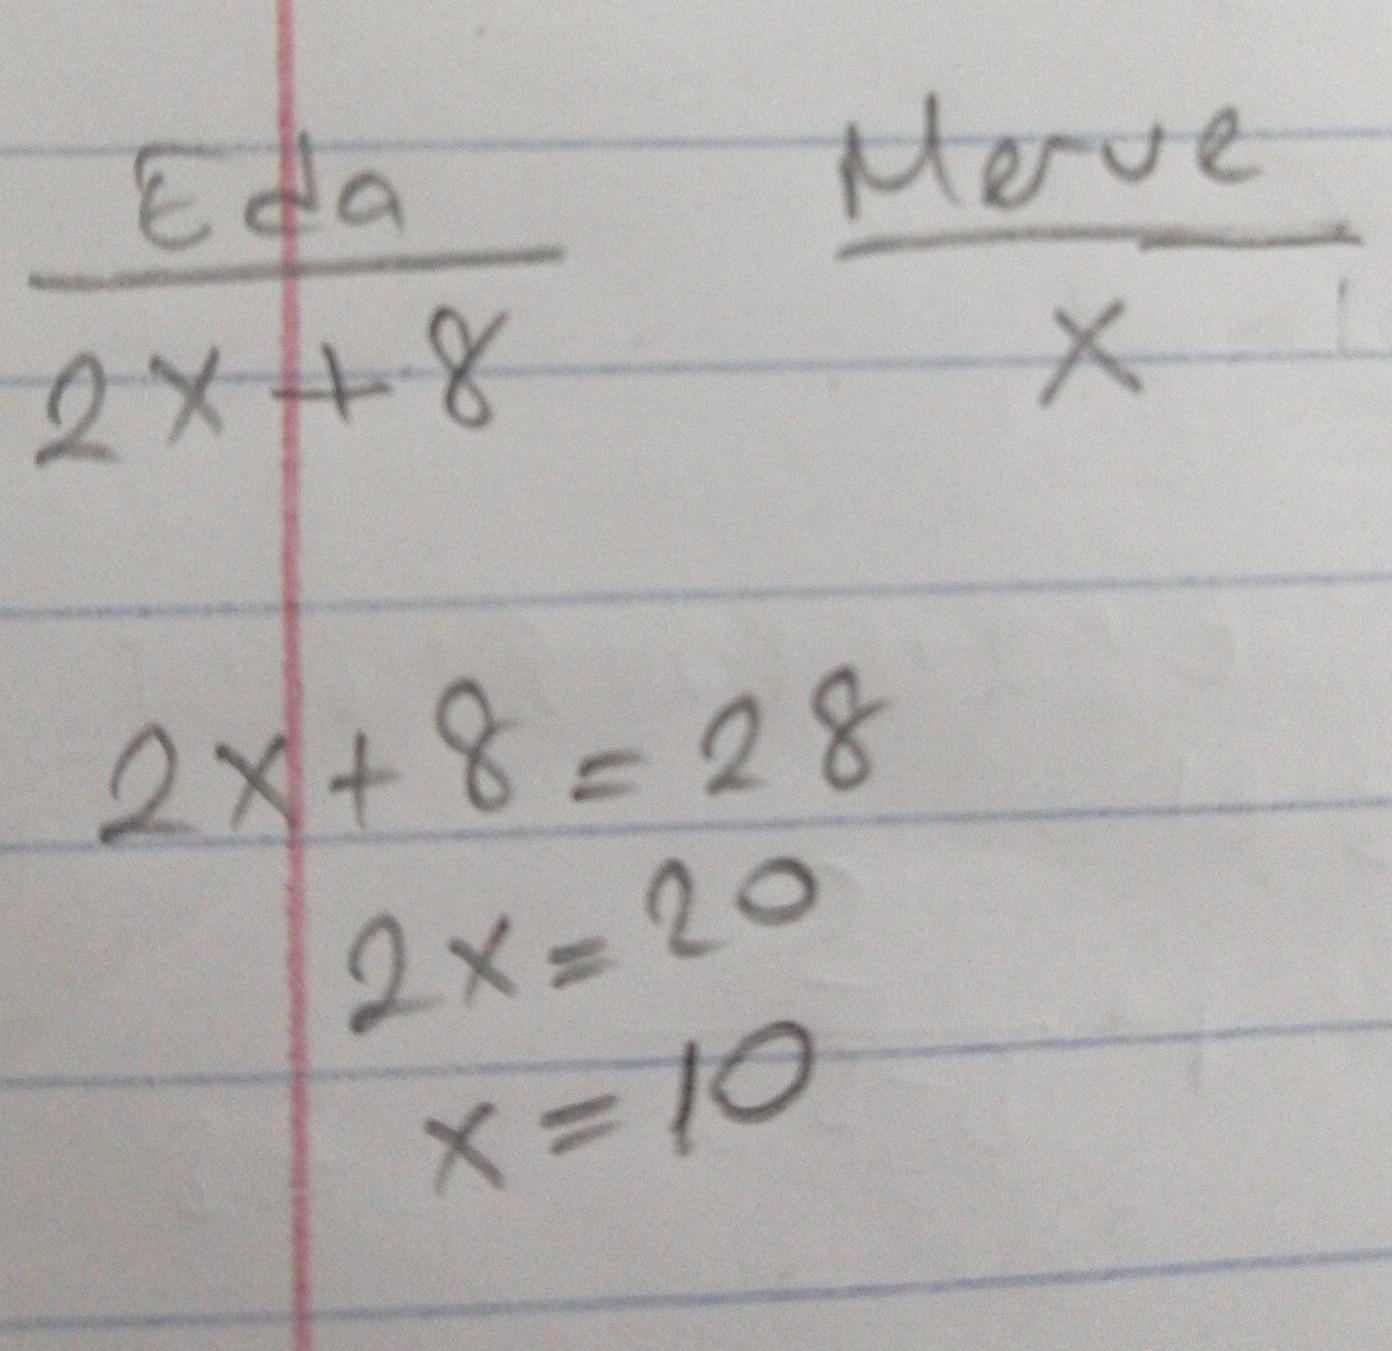 Eda Merve
2x+8 x
2x+8=28
2x=20
x=10